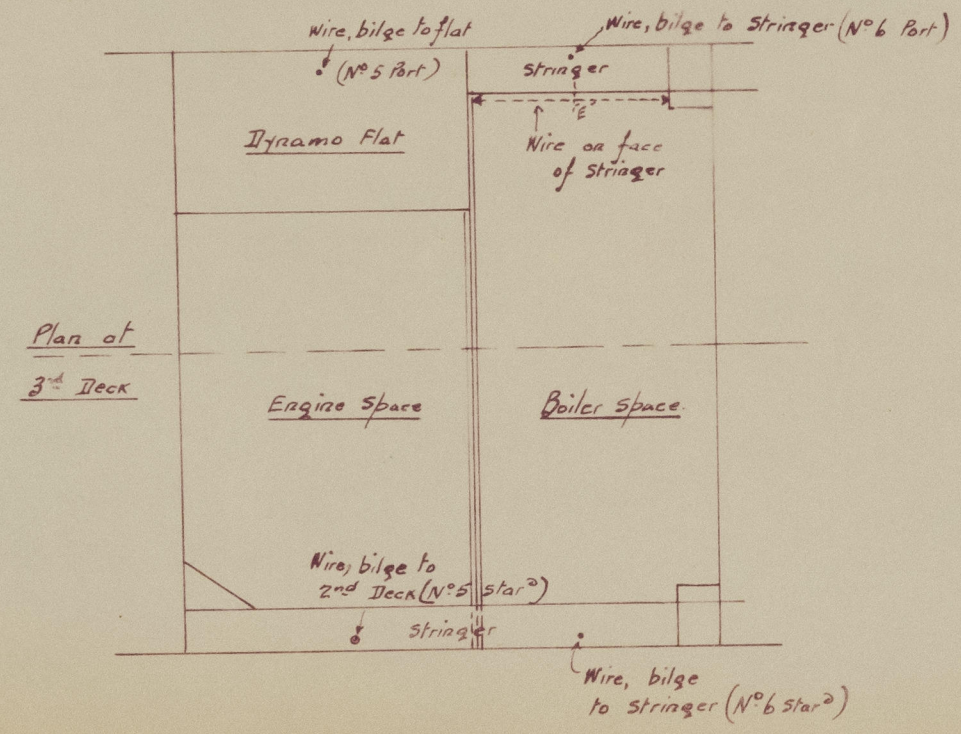 Wire, bilge to flat
(Nº 5 Port)
Wire, bilge to Stringer (Nº 6 Port)
Stringer
'E'
Wire on face
of Stringer
Dynamo Flat
Plan at
3rd Deck
Engine Space
Boiler Space.
Wire, bilge to
2nd Deck (Nº 5 Starᵈ)
Stringer
Wire, bilge
to Stringer (Nº 6 Starᵈ)